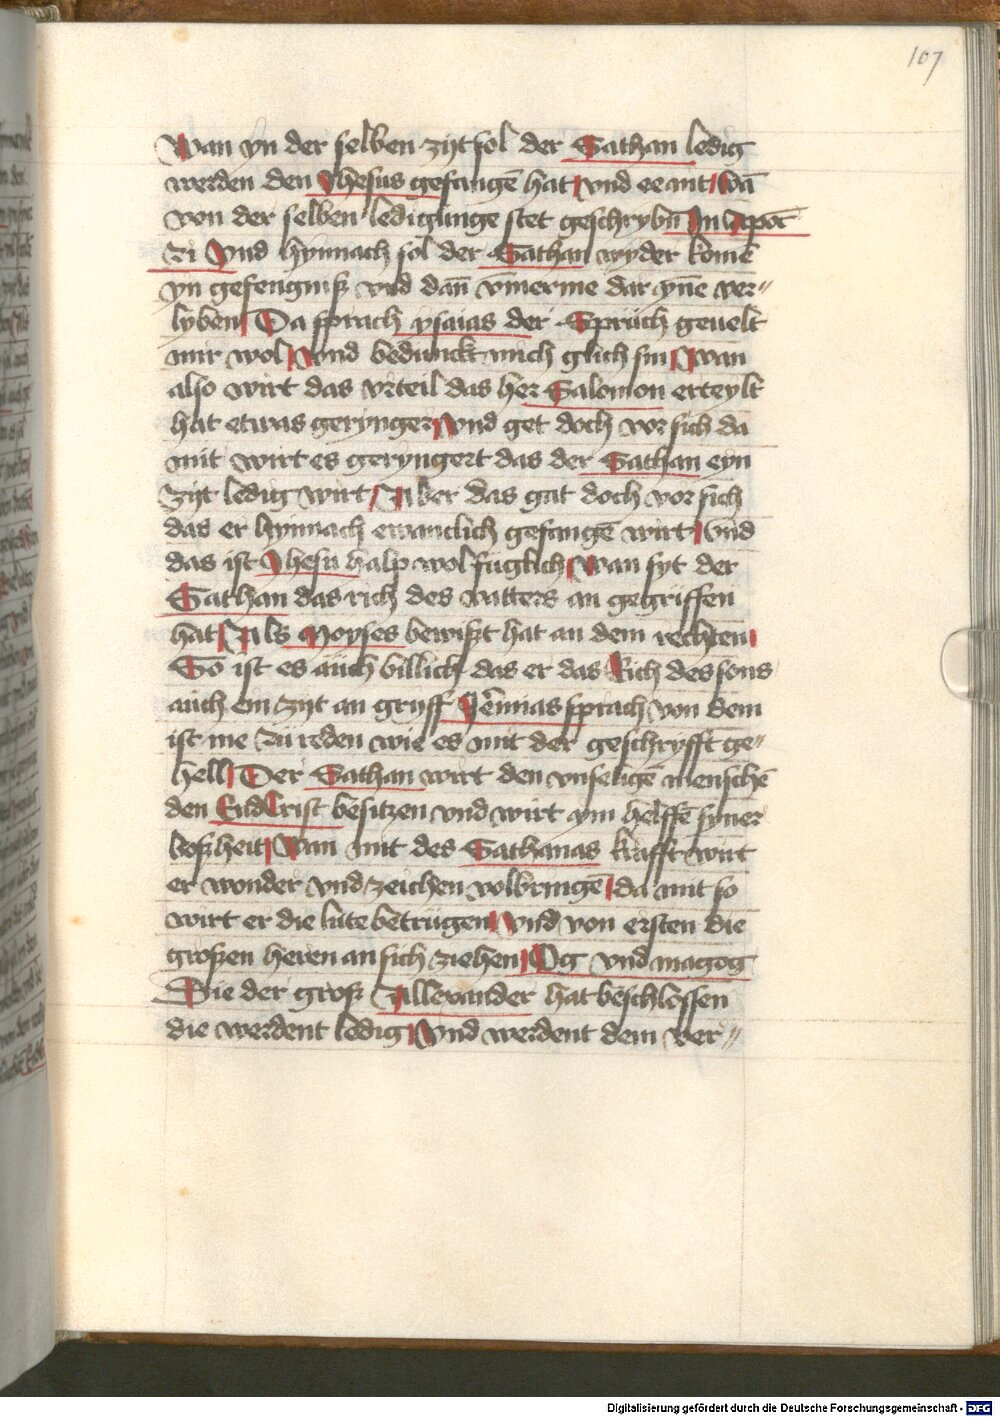 107
Wan yn der selben zijt sol der Sathan ledig
werden den Jhesus gefangē hat vnd ee mt vā
von der selben lediglunge stet geschrybn̄ In Apoc̄
Zi Vnd hynnach sol der Sathan wyder komē
yn gefengniß vnd dan̄ vm̄erme dar ynē ver〃
lyben Da sprach ysaias der Sprüch geuelt
mir wol Vnd bedunckt mich glich sin Wan
also wirt das vrteil das her Salomon erteylt
hat etwas gerynger vnd get doch vor sich da
mit wirt es geryngert das der Sathan eyn
Zijt ledig wirt Aber das gat doch vor sich
das er hynnach ewanclich gefangē wirt Vnd
das ist Jhesu halp wol füglich Wan syt der
Sathan das rich des vatters an gegriffen
hat Als Moyses bewißt hat an dem rechten
So ist es auch billich das er das Rich des sons
auch ein zijt an gryff Jeremias sprach von dem
ist me zu reden wie es mit der geschryfft ge〃
hell Der Sathan wirt den vnseligē menschē
den EndCrist besitzen vnd wirt ym helffē syner
boßheit Wan mit des Sathanas krafft wirt
er wonder vnd zeichen volbringē da mit so
wirt er die lüte betrugen Vnd von ersten die
großen heren an sich ziehen Og vnd magog
Die der groß Allexander hat beschlossen
die werdent ledig Vnd werdent dem ver〃
Digitalisierung gefördert durch die Deutsche Forschungsgemeinschaft - DFG